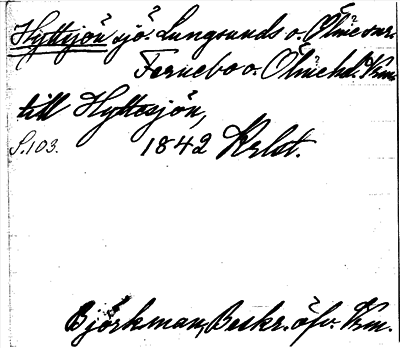 Hyttsjön sjö. Lungsunds o. Ölme snr.
Fernebo o. Ölme hd. Vrm.
till Hyttesjön,
S. 103. 1842 Krlst.
Björkman, Beskr. öfv. Vrm.